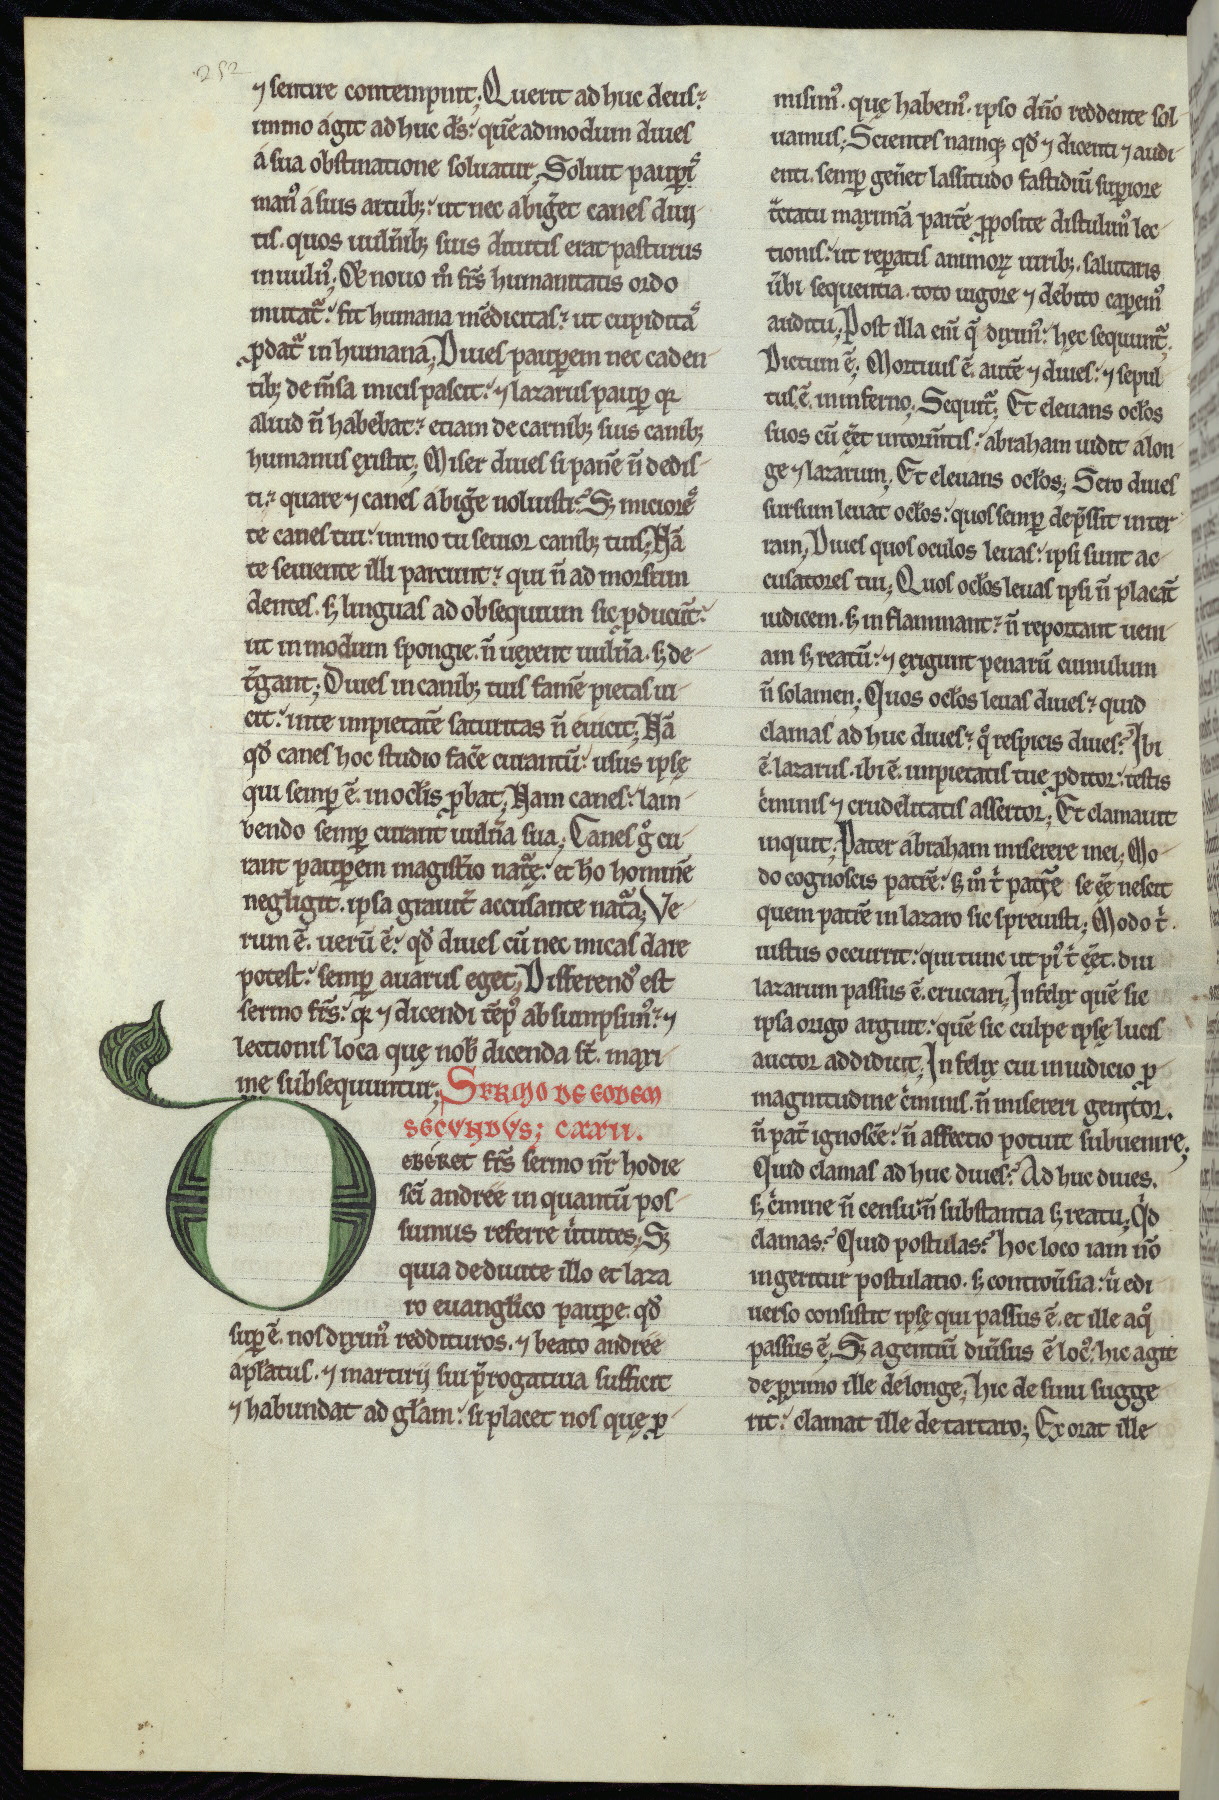 252
⁊ sentire contempnit; Querit adhuc deus?
immo agit adhuc dс̄: quēadmodum diues
a sua obstinatione soluatur; Soluit paupiᷤ
manꝰ a suis artubꝫ: ut nec abiḡet canes diui
tis. quos uuln̄ibꝫ suis diuitis erat pasturus
in uulnꝰ; & nouo m̊ fr̄s humanitatis ordo
mutat᷑: fit humana mēdicitas? ut cupiditaᷤ
p̱dat᷑ inhumana; Diues paup̱em nec caden
tibꝫ de m̄sa micis pascit: ⁊ lazarus paup̱ qr
aliud n̄ habebat? etiam de carnibꝫ suis canibꝫ
humanus existit; Miser diues si panē n̄ dedis
ti? quare ⁊ canes abiḡe noluisti? Sꝫ micioreᷤ
te canes tui: immo tu seuior canibꝫ tuis; Nā
te seuiente illi parcunt? qui n̄ ad morsum
dentes. sꝫ linguas ad obsequium sic ꝓducūt:
ut in modum spongie. n̄ uexent uuln̄a. sꝫ de
t̄gant; Diues in canibꝫ tuis famē pietas ui
cit: in te impietatē saturitas n̄ euicit; Nā
qđ canes hoc studio fac̄e curantū: usus ipsę
qui semp̱ ē. in oc̄lis ꝓbat; Nam canes: lam
bendo semp̱ curant uuln̄a sua; Canes g̊ cu
rant paup̱em magist̄io nat᷑ę: et ho hominē
negligit. ipsa grauit̄ accusante nat᷑a; Ve
rum ē. uerū ē: qđ diues cū nec micas dare
potest: semp̱ auarus eget; Differendꝰ est
sermo fr̄s: qr ⁊ dicendi tēpꝰ absumpsimꝰ? ⁊
lectionis loca quę nob̄ dicenda st̄. maxi
me subsequuntur; SERMO DE EODEM
SECUNDUS; CXXII.
DEBERET fr̄s sermo nr̄ hodie
sc̄i andree in quantū pos
sumus referre ūtutes; Sꝫ
quia de diuite illo et laza
ro euangl̄ico paup̱e. qđ
sup̱ ē. nos diximꝰ reddituros. ⁊ beato andree
apl̄atus. ⁊ martirij sui p̄rogatiua sufficit
⁊ habundat ad gl̄am: si placet nos quę ꝓ
misimꝰ. quę habemꝰ. ipso dn̄o reddente sol
uamus; Scientes namqꝫ qđ ⁊ dicenti ⁊ audi
enti. semp̱ gen̄et lassitudo fastidiū superiore
t̄ctatu maximā partē ꝓposite distulimꝰ lec
tionis: ut rep̱atis animoꝝ uiribꝫ. salutaris
ūbi sequentia. toto uigore ⁊ debito cap̱emꝰ
auditu; Post illa eni᷑ q̄ diximꝰ: hec sequunt᷑.
Dictum ē; Mortuus ē. autē ⁊ diues: ⁊ sepul
tus. ē. in inferno; Sequit᷑; Et eleuans ocl̄os
suos cū eēt in tormn̄tis: abraham uidit a lon
ge ⁊ lazarum; Et eleuans ocl̄os; Sero diues
sursum leuat ocl̄os: quos semp̱ dep̄ssit in ter
ram; Diues quos oculos leuas: ipsi sunt ac
cusatores tui; Quos ocl̄os leuas ipsi n̄ placāt
iudicem. sꝫ inflammant? n̄ reportant ueni
am sꝫ reatū: ⁊ exigunt penarū cumulum
n̄ solamen; Quos ocl̄os leuas diues? quid
clamas adhuc diues? q̊ respicis diues? Ibi
ē. lazarus. ibi ē. impietatis tue ꝓditor: testis
c̄minis ⁊ crudelitatis assertor; Et clamauit
inquit; Pater abraham miserere mei; Mo
do cognoscis patrē: sꝫ m̊ t̄ pat̄ē se eē nescit
quem patrē in lazaro sic spreuisti; Modo t̄.
iustus occurrit: qui tunc ut piꝰ t̄ eēt. diu
lazarum passus ē. cruciari; Infelix quē sic
ipsa origo arguit: quē sic culpe ipsę lucis
auctor addidicit; Infelix cui in iudicio p̱
magnitudine c̄minis. n̄ misereri genitor.
n̄ pat̄ ignosc̄e: n̄ affectio potuit subuenire;
Quid clamas adhuc diues? Adhuc diues.
sꝫ c̄mine n̄ censu: n̄ substantia sꝫ reatu; Qđ
clamas? Quid postulas? hoc loco iam nō
ingeritur postulatio. sꝫ controūsia: ū e di
uerso consistit ipsę qui passus ē. et ille a q̊
passus ē; Sꝫ agentiū diūsus ē locꝰ; hic agit
de p̱ximo ille de longe; hic de sinu sugge
rit: clamat ille de tartaro; Exorat ille